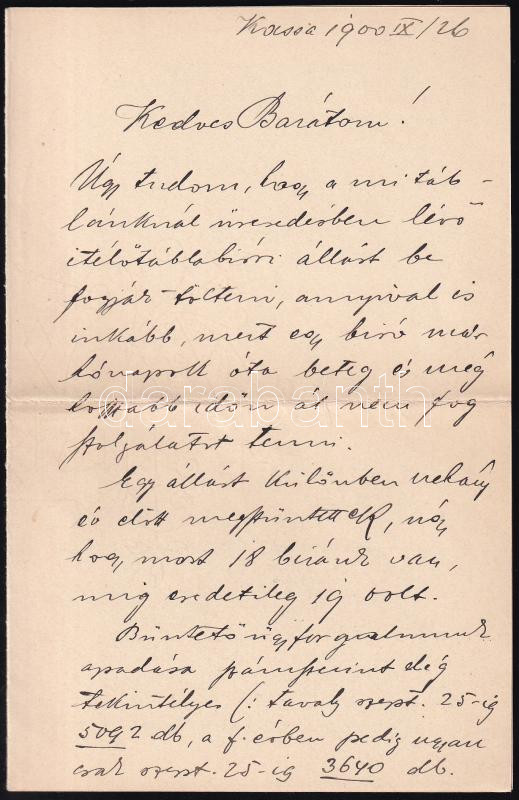 Kassa 1900 IX/26
Kedves Barátom!
Úgy tudom, hogy a mi táb-
lánknál üresedésben lévő
itélőtáblabirói állást be
fogják tölteni, annyival is
inkább, mert egy biró már
hónapok óta beteg és még
hosszabb időn át nem fog
szolgálatot tenni.
Egy állást különben nehány
év előtt megszüntettek, úgy
hogy most 18 biránk van,
mig eredetileg 19 volt.
Büntető ügyforgalmunk
apadása számszerint elég
tekintélyes (: tavaly szept. 25-ig
5092 db, a f. évben pedig ugyan
csak szept. 25-ig 3640 db.
darabanth